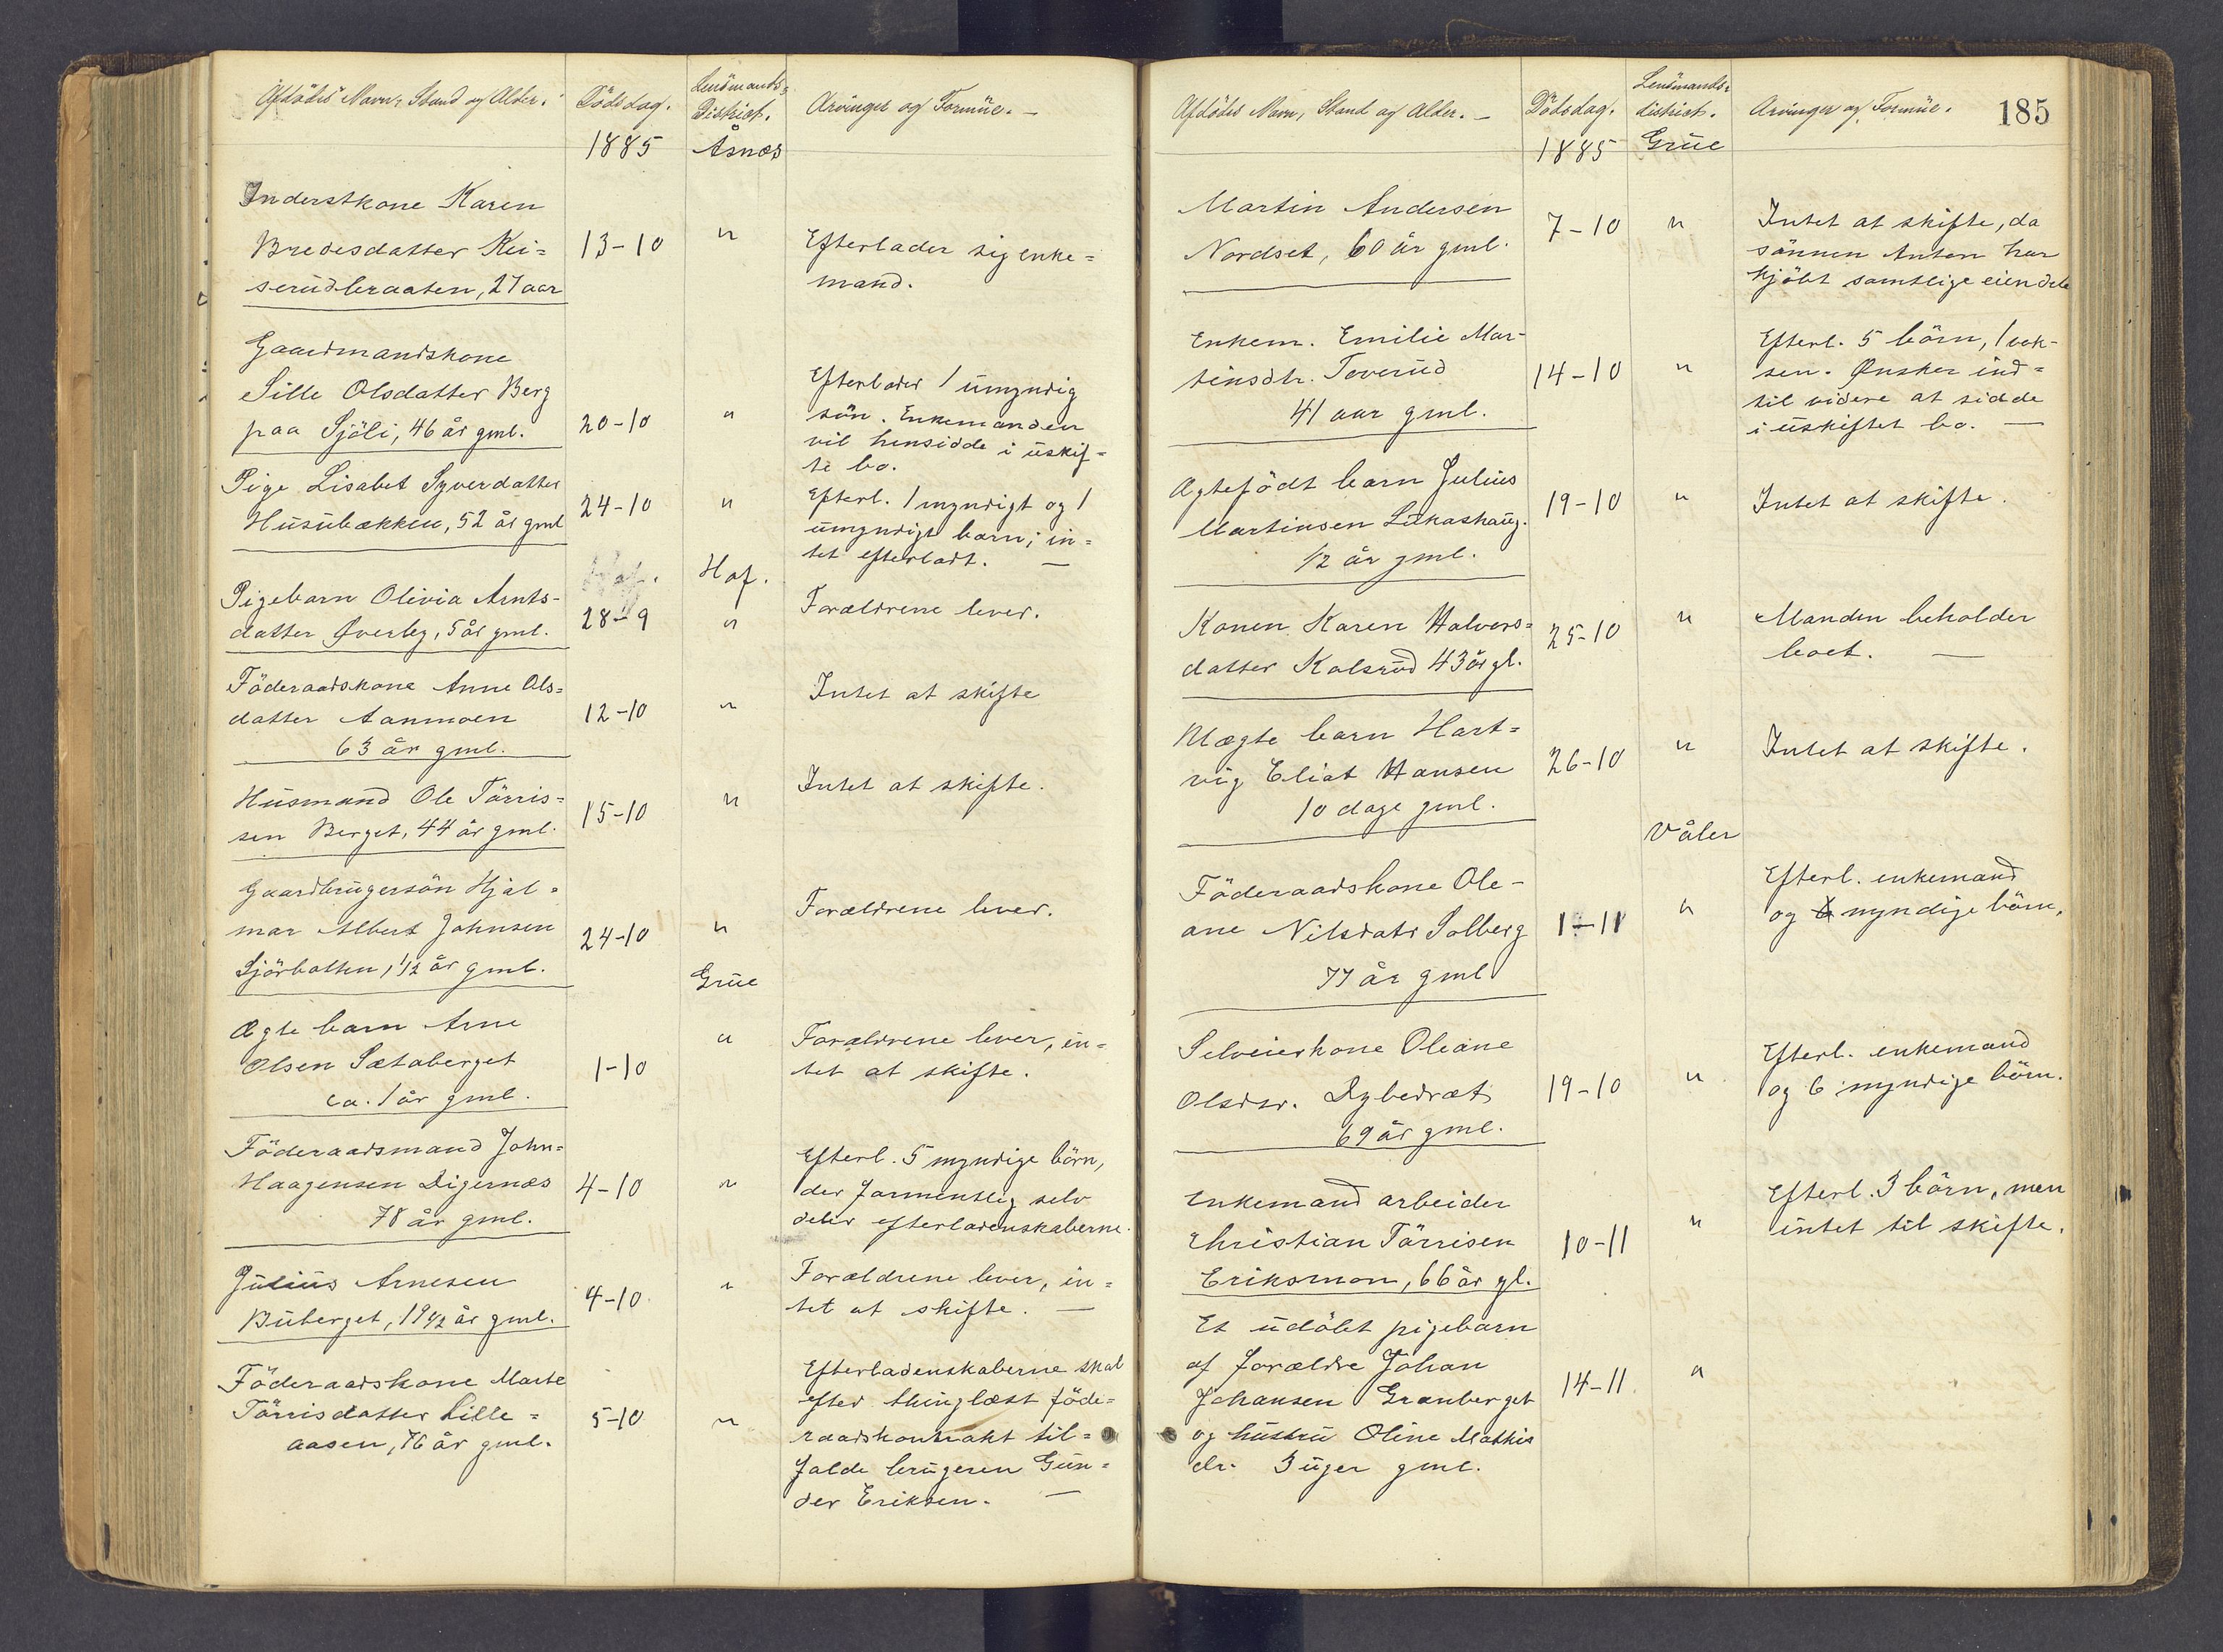 Afdödes Navn, Stand og Alder.
Dödsdag.
Lensmands-
District.
Arvinger og Formüe. —
1885
Åsnæs
Inderstkone Karen
Bredesdatter Kei=
serudbraaten, 27 aar
13-10
"
Efterlader sig enke=
mand.
Gaardmandskone
Sille Olsdatter Berg
paa Sjöli, 46 år gml.
20-10
"
Efterlader 1 umyndig
sön. Enkemanden
vil hensidde i uskif=
te bo.
Pige Lisabet Syverdatter
Husubækken, 52 år gml
24-10
"
Efterl. 1 myndigt og 1
umyndigt barn; in=
tet efterladt. —
Hof.
Pigebarn Olivia Arnts-
datter Øverby, 5 år gml.
28-9
"
Forældrene lever.
Föderaadskone Anne Ols=
datter Aanmoen
63 år gml.
12-10
"
Intet at skifte
Husmand Ole Törris=
sen Berget, 44 år gml.
15-10
"
Intet at skifte.
Gaardbrugersön Hjal=
mar Albert Johnsen
Sjörbotten, 1/2 år gml.
24-10
"
Forældrene lever.
Grue
Ægte barn Arne
Olsen Sætaberget
ca. 1 år gml.
1-10
"
Forældrene lever, in=
tet at skifte.
Föderaadsmand John=
Haagensen Digernæs
78 år gml.
4-10
"
Efterl. 5 myndige börn,
der formentlig selv
deler efterladenskaberne.
Julius Arnesen
Buberget, 19 1/2 år gml.
4-10
"
Forældrene lever, in=
tet at skifte. —
Föderaadskone Marte
Törrisdatter Lille=
aasen, 76 år gml.
5-10
"
Efterladenskaberne skal
efter thinglæst föde=
raadskontrakt til=
falde brugeren Gun=
der Eriksen. —
Afdödes Navn, Stand og Alder. —
Dödsdag.
Lensmands-
district.
Arvinger og Formüe.
185
1885
Grue
Martin Andersen
Nordset, 60 år gml.
7-10
"
Intet at skifte, da
sönnen Anton har
kjöbt samtlige eiendele
Enkem. Emilie Mar-
tinsdtr. Toverud
41 aar gml.
14-10
"
Efterl. 5 börn, 1 vok-
sen. Ønsker ind=
til videre at sidde
i uskiftet bo. —
Ægtefödt barn Julius
Martinsen Lukashaug.
1/2 år gml.
19-10
"
Intet at skifte.
Konen Karen Halvors=
datter Kolsrud 43 år gl.
25-10
"
Manden beholder
boet. —
Uægte barn Hart=
vig Eliat Hansen
10 dage gml.
26-10
"
Intet at skifte.
Våler
Föderaadskone Ole-
ane Nilsdatr Solberg
77 år gml
1-11
"
Efterl. enkemand
og 6 myndige börn.
Selveierkone Oleane
Olsdtr. Dybedræt
69 år gml.
19-10
"
Efterl. enkemand
og 6 myndige börn.
Enkemand arbeider
Christian Törrisen
Eriksmon, 66 år gl.
10-11
"
Efterl. 3 börn, men
intet til skifte.
Et udöbt pigebarn
af forældre Johan
Johansen Granberget
og hustru Oline Mathis
dr. 3 uger gml.
14-11
"